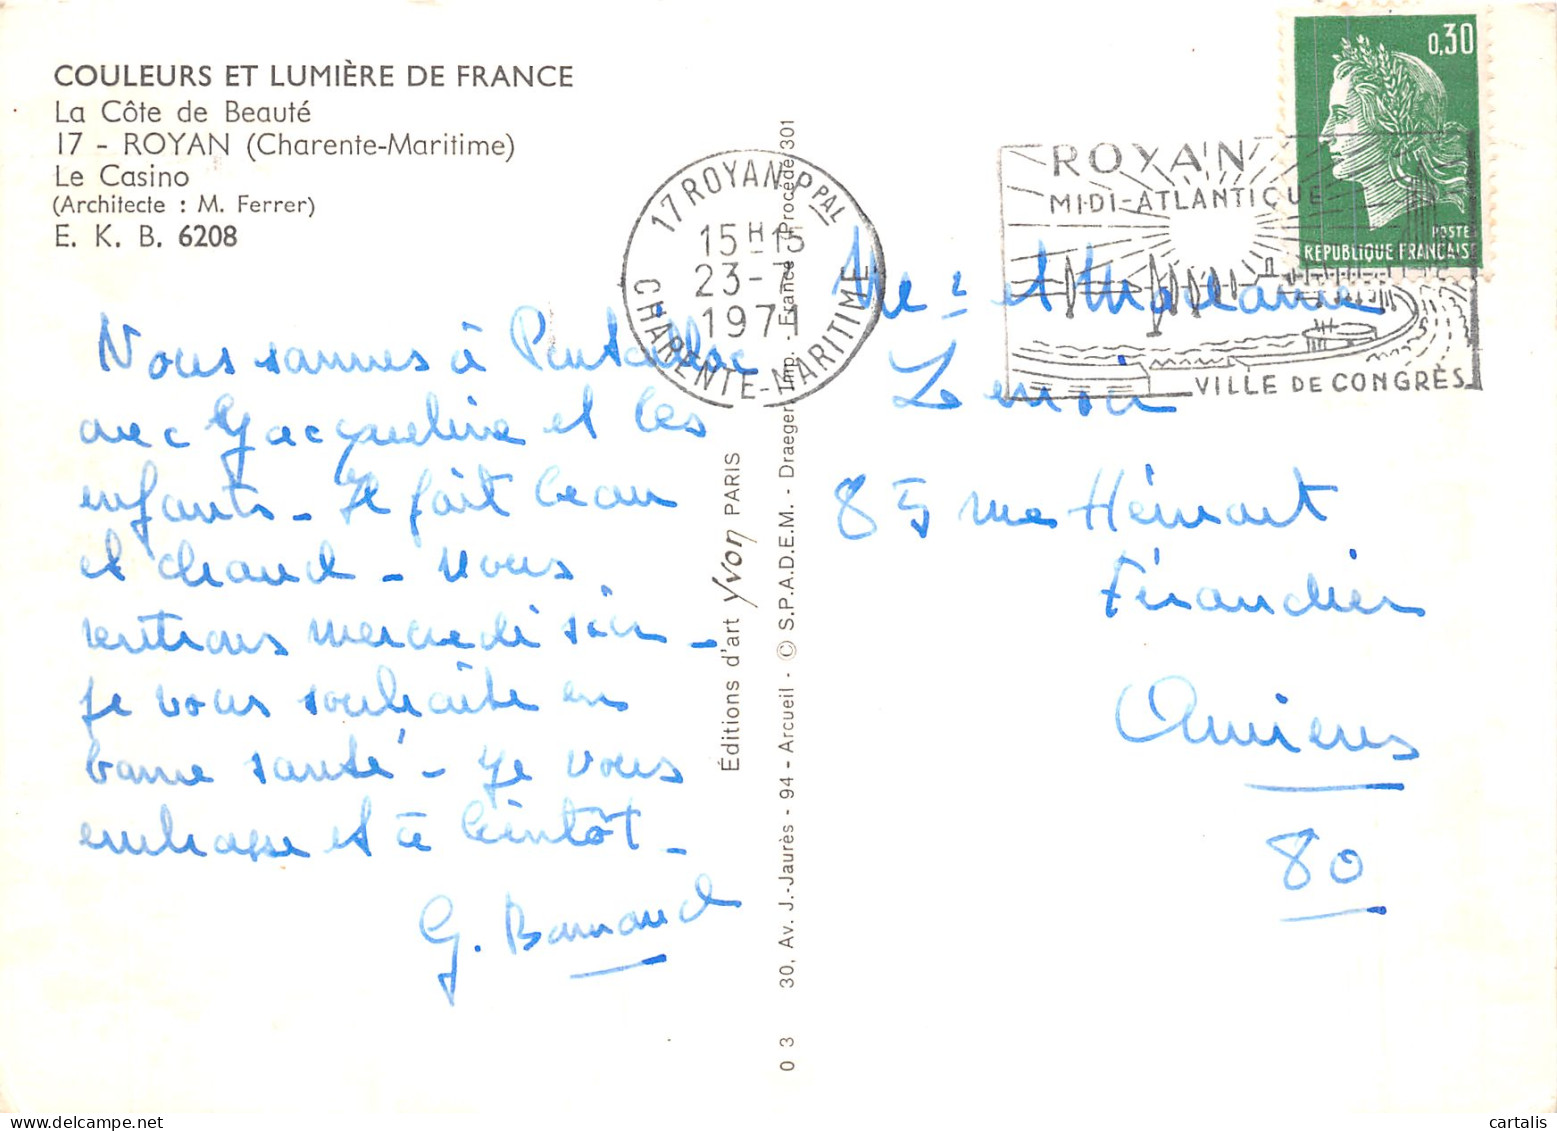 COULEURS ET LUMIÈRE DE FRANCE
La Côte de Beauté
17 - ROYAN (Charente-Maritime)
Le Casino
(Architecte : M. Ferrer)
E. K. B. 6208
Nous sommes à Pontaillac
avec Jacqueline et les
enfants - Il fait beau
et chaud - Nous
rentrons mercredi soir -
Je vous souhaite en
bonne santé - Je vous
embrasse et à bientôt -
G. Barnaud
Éditions d'art Yvon PARIS
30, Av. J.-Jaurès - 94 - Arcueil - © S.P.A.D.E.M. - Draeger, Imp. - France - Procédé 301
0 3
17 ROYAN PPAL
15H15
23-7
1971
CHARENTE-MARITIME
ROYAN
MIDI-ATLANTIQUE
VILLE DE CONGRÈS
0,30
POSTE
REPUBLIQUE FRANÇAISE
Mr et Madame
85 rue
Amiens
80
cartalis